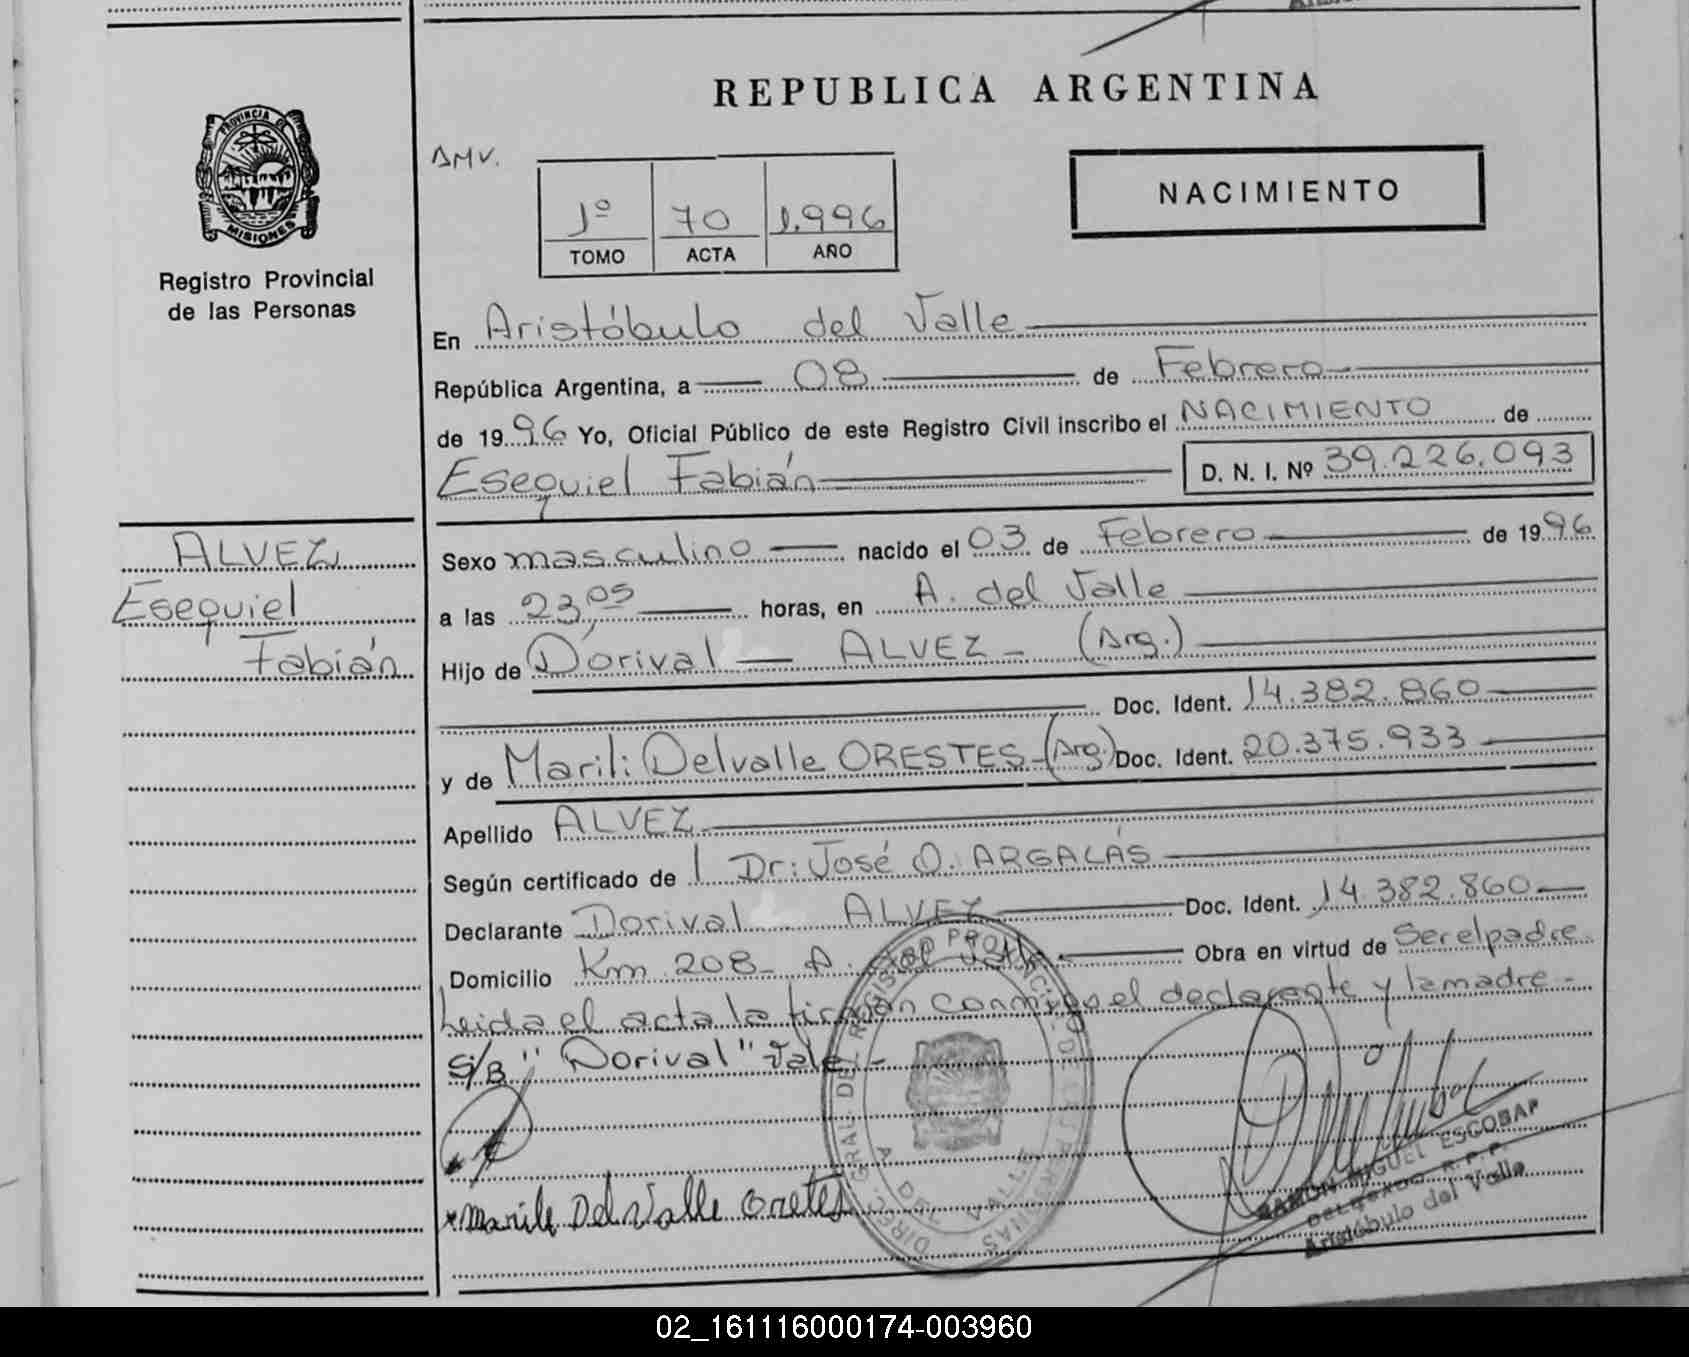 REPUBLICA ARGENTINA
PROVINCIA DE
MISIONES
Registro Provincial
de las Personas
AMV.
1º 70 1.996
TOMO ACTA AÑO
NACIMIENTO
En Aristóbulo del Valle
República Argentina, a 08 de Febrero
de 1996 Yo, Oficial Público de este Registro Civil inscribo el NACIMIENTO de
Esequiel Fabián D. N. I. Nº 39.226.093
ALVEZ
Esequiel
Fabián
Sexo masculino nacido el 03 de Febrero de 1996
a las 23,05 horas, en A. del Valle
Hijo de Dorival ALVEZ - (Arg.)
Doc. Ident. 14.382.860
y de Marili Delvalle ORESTES - (Arg.) Doc. Ident. 20.375.933
Apellido ALVEZ
Según certificado de Dr: José O. ARGALÁS
Declarante Dorival ALVEZ Doc. Ident. 14.382.860
Domicilio Km 208 - A. del Valle Obra en virtud de Ser el padre
Leida el acta la firman conmigo el declarante y la madre -
S/B "Dorival" Vale -
Marile Del Valle Oretes
DIREC. GRAL. DEL REGISTRO PROVINCIAL DE LAS PERSONAS
A. DEL VALLE
RAMON MIGUEL ESCOBAR
DELEGADO R.P.P.
Aristóbulo del Valle
02_161116000174-003960